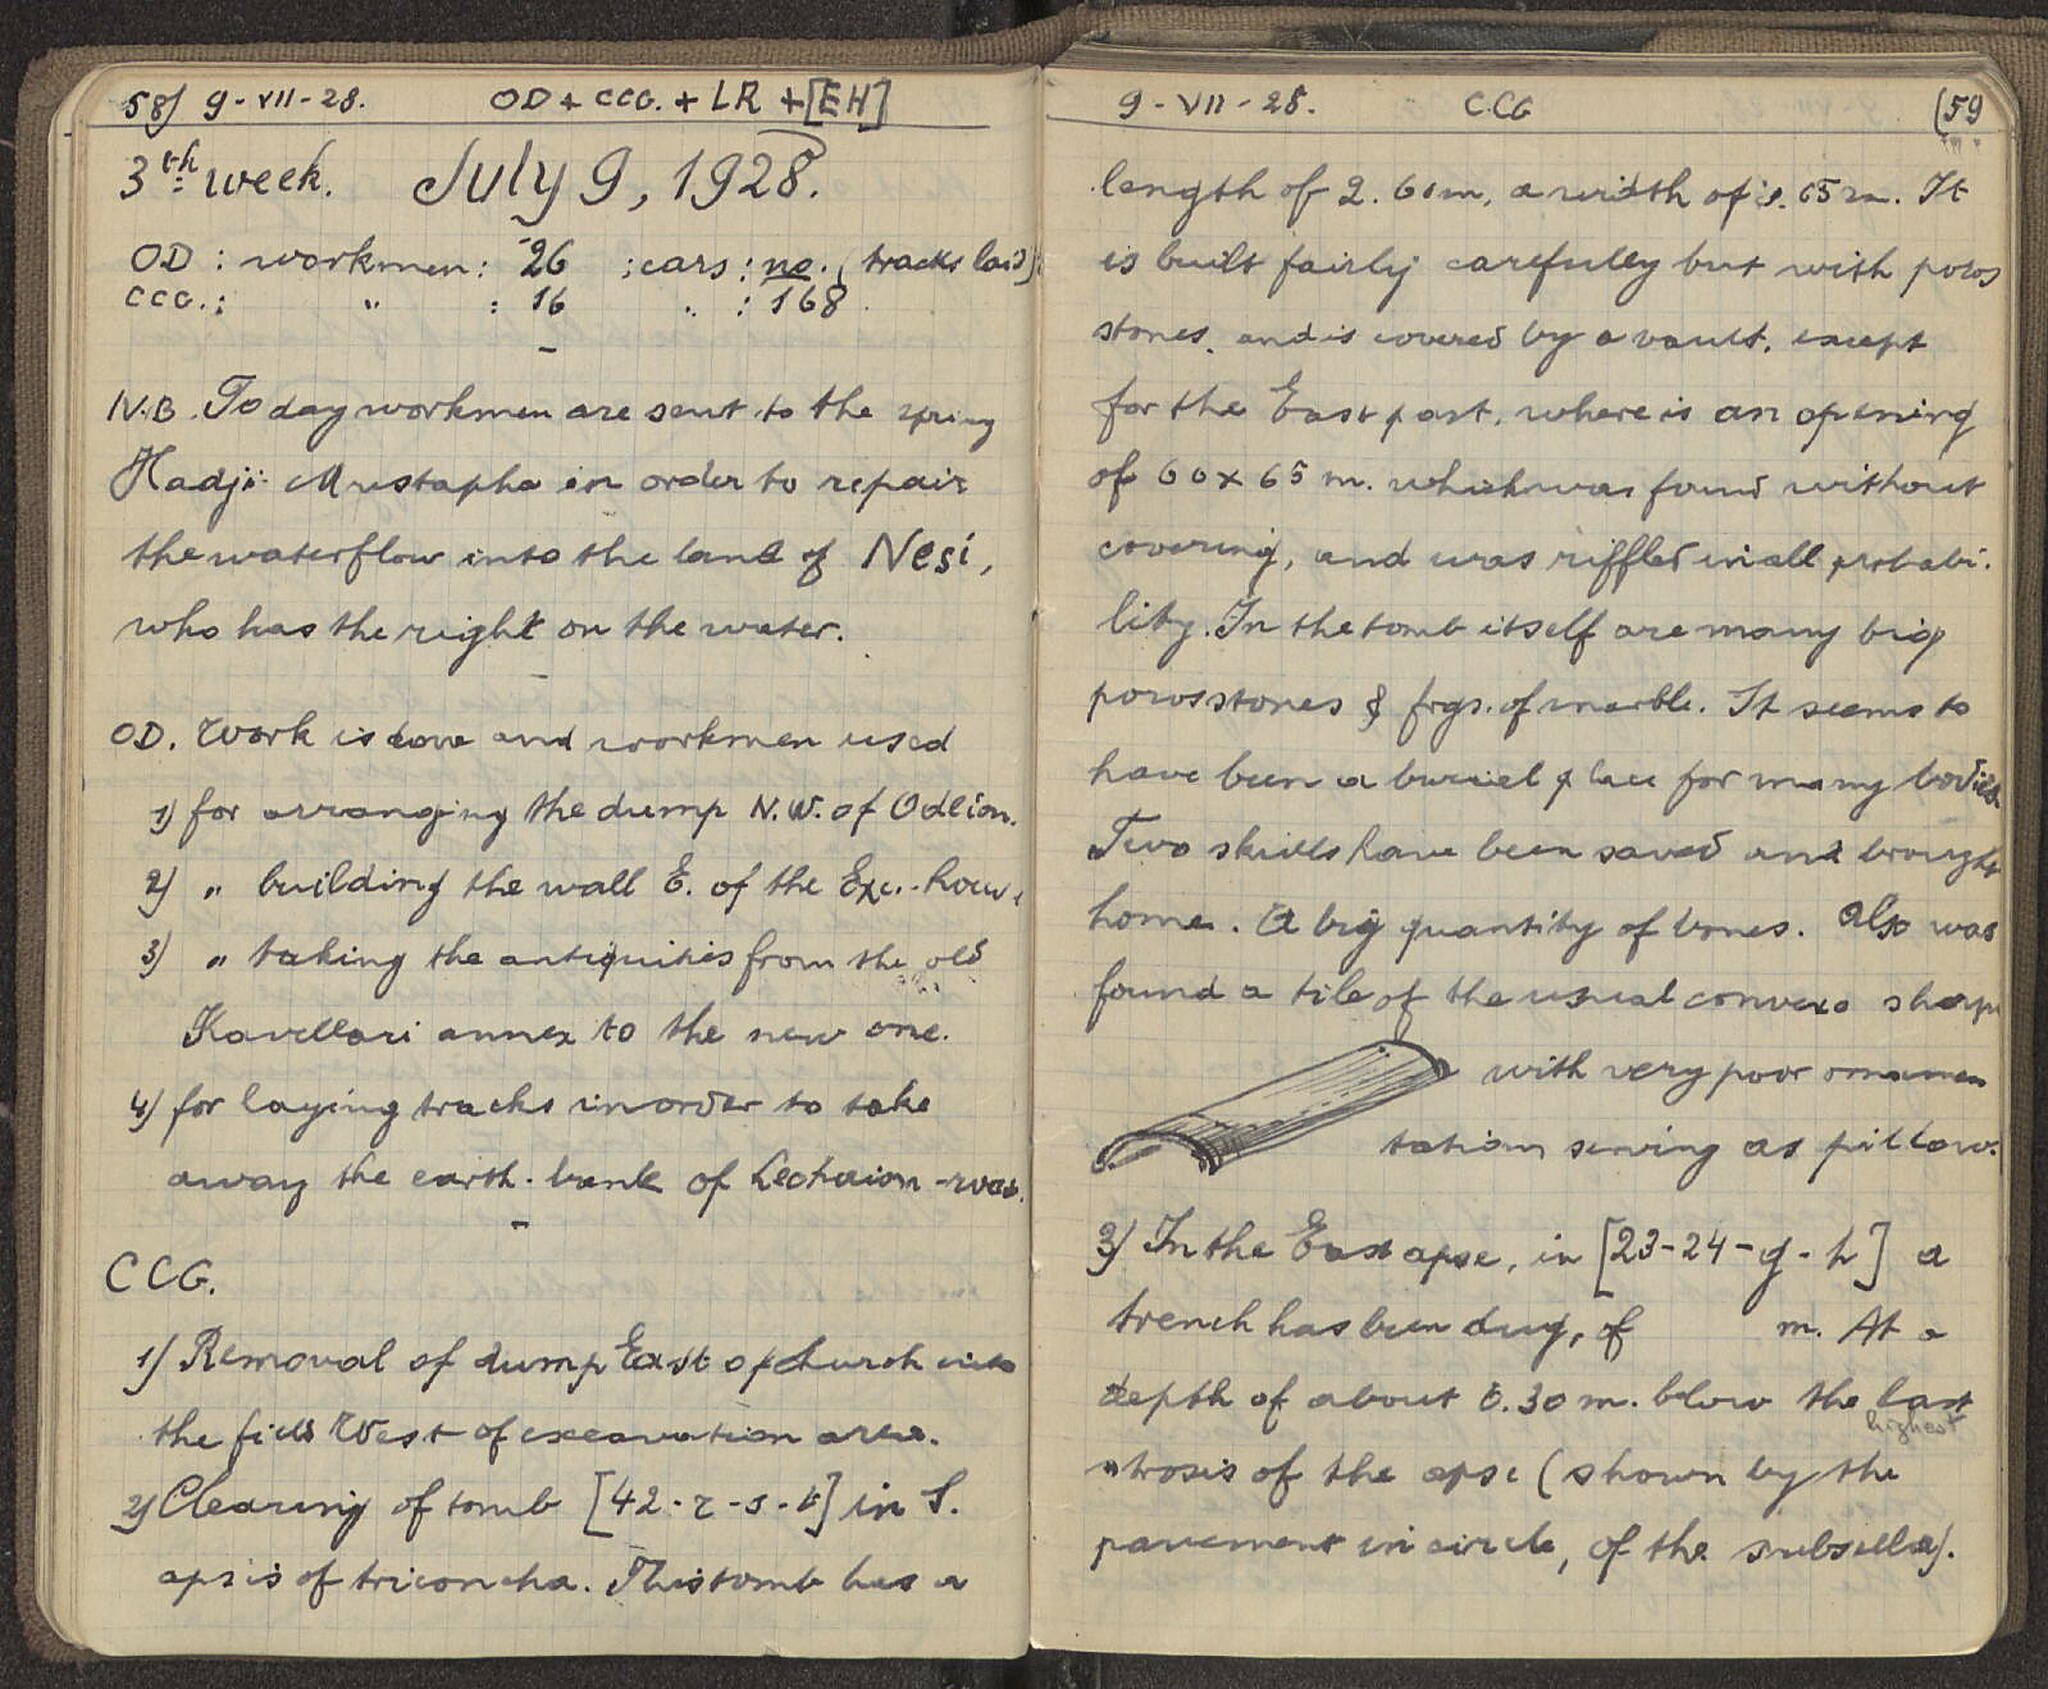 58) 9-VII-28. OD + CCG. + LR + [EH]
3th week. July 9, 1928.
OD : workmen : 26 ; cars : no. (tracks laid)
CCG. : " : 16 " : 168.
N.B. To day workmen are sent to the spring
Hadji Mustapha in order to repair
the waterflow into the land of Nesi,
who has the right on the water.
OD. Work is done and workmen used
1) for arranging the dump N.W. of Odeion.
2) " building the wall E. of the Exc.-house
3) " taking the antiquities from the old
Kavellari annex to the new one.
4) for laying tracks in order to take
away the earth-bank of Lechaion-road.
CCG.
1) Removal of dump East of church into
the field West of excavation area.
2) Clearing of tomb [42-r-s-t] in S.
apsis of triconcha. This tomb has a
9-VII-28. CCG (59
length of 2.60m, a width of 65 m. It
is built fairly carefully but with poros
stones, and is covered by a vault, except
for the East part, where is an opening
of 60 x 65 m. which was found without
covering, and was riffled in all probabi-
lity. In the tomb itself are many big
poros stones & frgs. of marble. It seems to
have been a buriel place for many bodies.
Two skulls have been saved and brought
home. A big quantity of bones. Also was
found a tile of the usual convexe shape
with very poor ornamen
tation serving as pillow.
3) In the East apse, in [23-24-g-h] a
trench has been dug, of m. At a
depth of about 0.30 m. below the last
highest
strosis of the apse (shown by the
pavement in circle, of the subsellia).